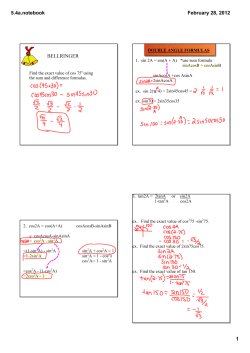 5.4a.notebook
February 28, 2012
BELLRINGER
Find the exact value of cos 75° using
the sum and difference formulas.
cos(45+30) =
cos45cos30 - sin45sin30
DOUBLE ANGLE FORMULAS
1. sin 2A = sin(A + A) *use sum formula
sinAcosB + cosAsinB
sinAcosA +cos AsinA
=2sinAcosA
ex. sin 2(45) = 2sin45cos45
ex. sin70 = 2sin35cos35
sin 100 : sin(2·50) = 2sin50cos50
2. cos2A = cos(A +A) cosAcosB-sinAsinB
= cosAcosA-sinAsinA
= cos²A - sin²A
=(1-sin²A) - sin²A
=1-2sin²A
sin²A + cos²A = 1
sin²A = 1 - cos²A
cos²A = 1 - sin²A
=cos²A - (1-cos²A)
=2cos²A - 1
3. tan2A = 2tanA or sin2A
1-tan²A cos2A
ex. Find the exact value of cos²75° -sin²75.
cos2A
cos(2·75)
cos150
ex. Find the exact value of 2sin75cos75.
sin2A
sin(2·75)
sin150
ex. Find the exact value of tan 150.
1